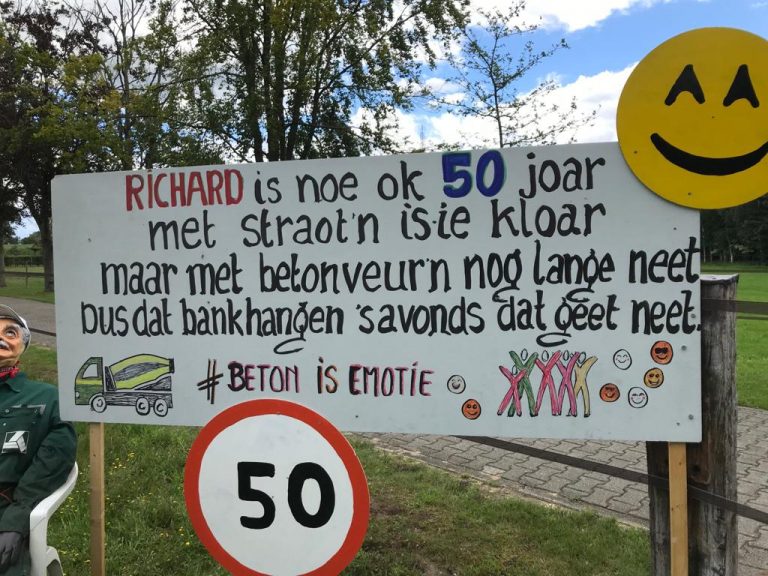 RICHARD is noe ok 50 joar
met straot'n is-ie kloar
maar met betonveur'n nog lange neet
Dus dat bankhangen 's avonds dat geet neet.
# BETON IS EMOTIE
50